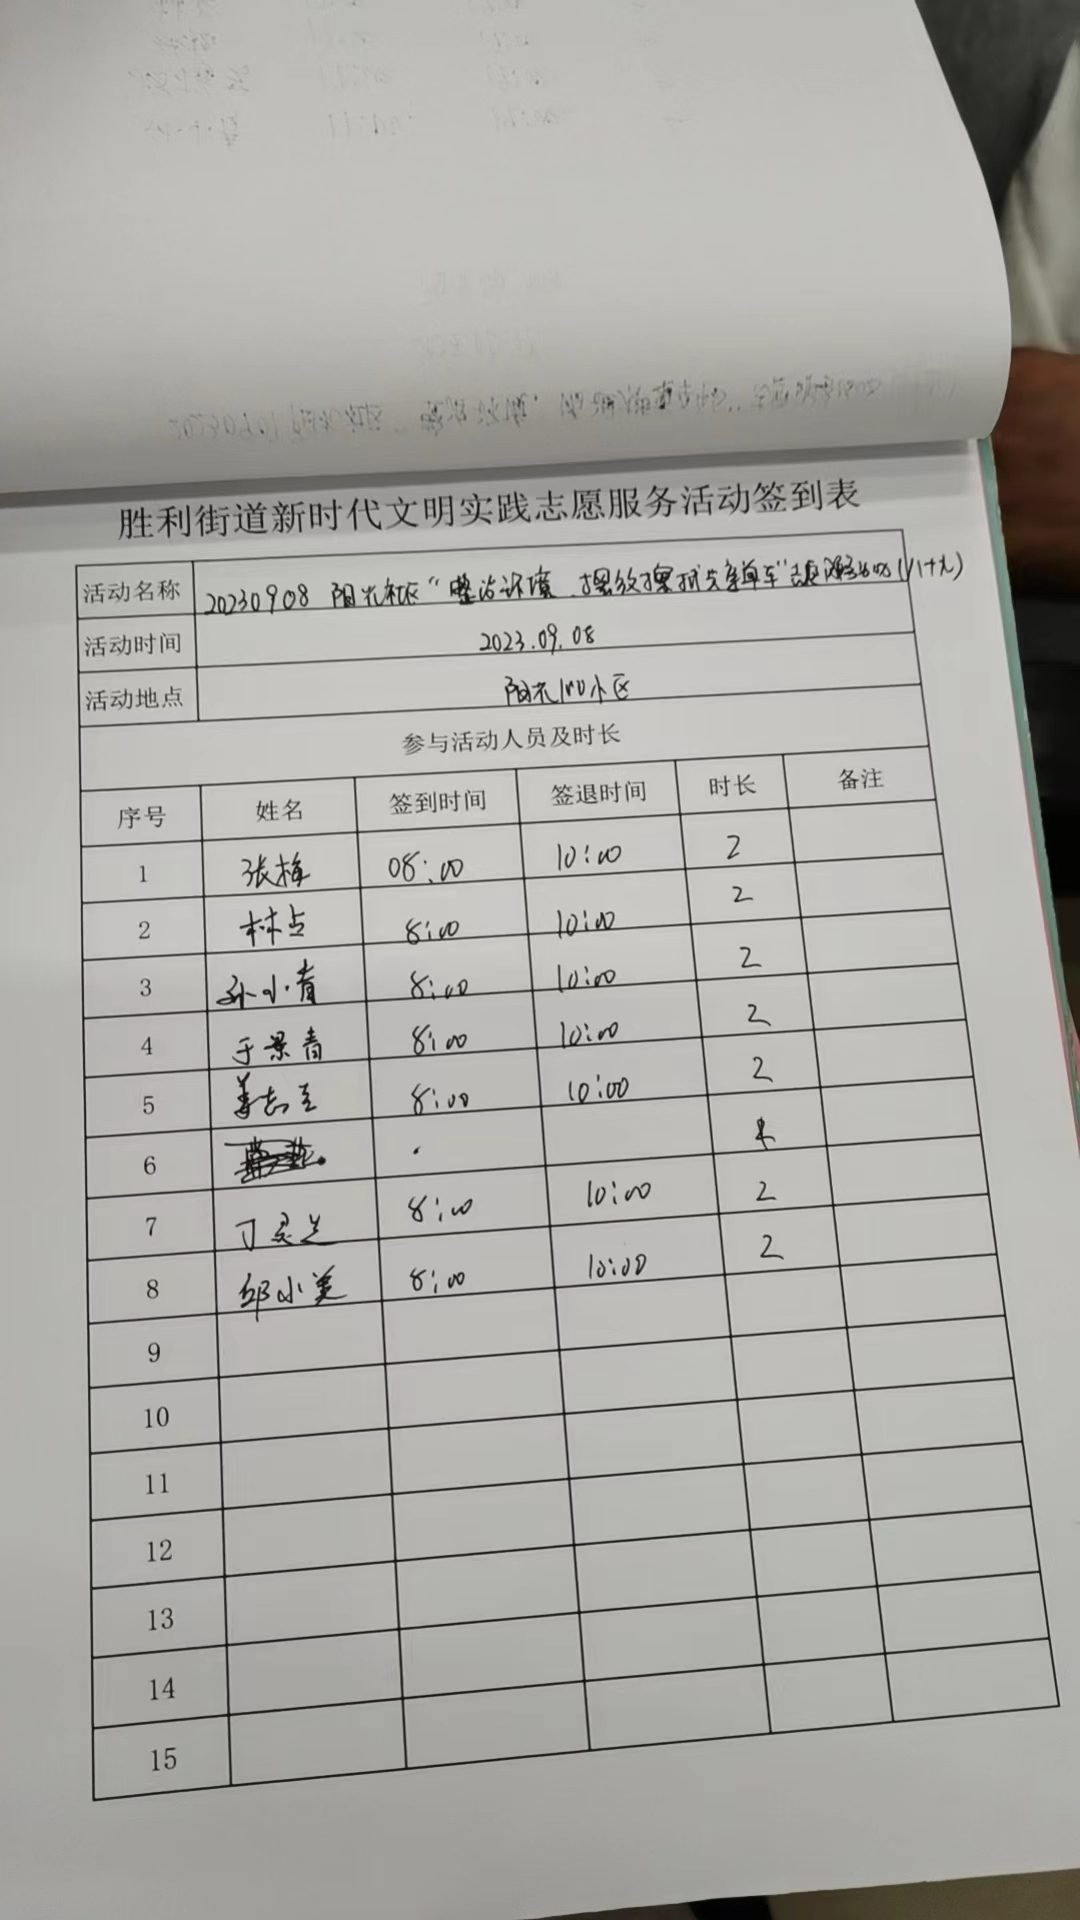 胜利街道新时代文明实践志愿服务活动签到表
活动名称 20230908 阳光社区“整治环境、摆放擦拭共享单车”志愿服务活动
活动时间 2023.09.08
活动地点 阳光100小区
参与活动人员及时长
序号 姓名 签到时间 签退时间 时长 备注
1 张梅 08:00 10:00 2
2 林占 8:00 10:00 2
3 孙小青 8:00 10:00 2
4 于景青 8:00 10:00 2
5 姜志 8:00 10:00 2
6
7 丁灵芝 8:00 10:00 2
8 邱小美 8:00 10:00 2
9
10
11
12
13
14
15